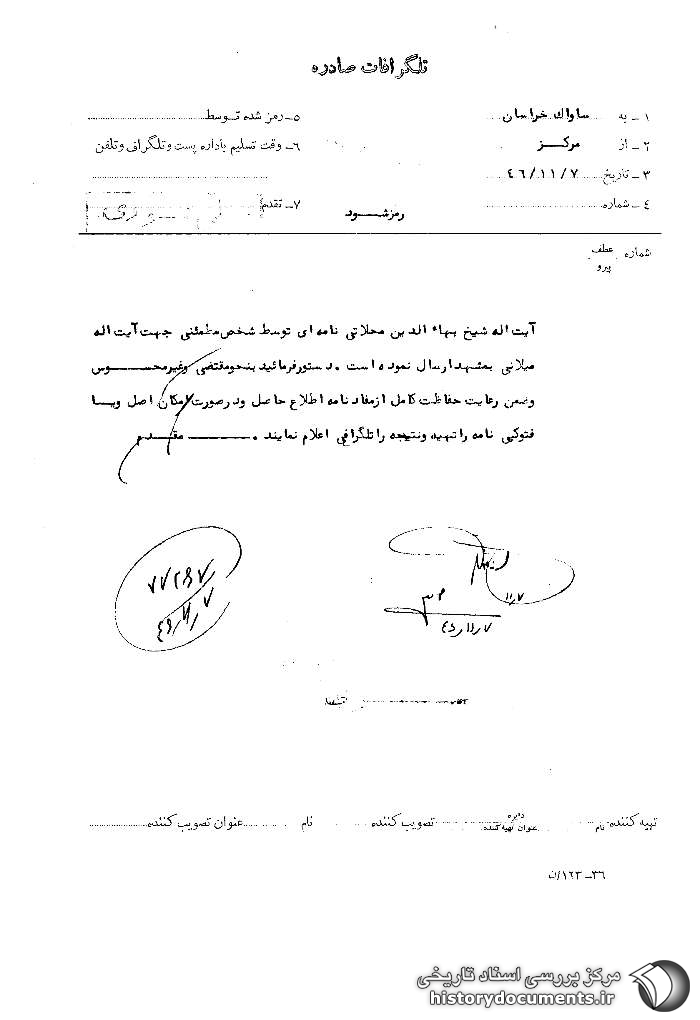 تلگرافات صادره
۱ـ به ساواك خراسان
۲ـ از مركز
۳ـ تاریخ ۴۶/۱۱/۷
۴ـ شماره
۵ـ رمز شده توسط
۶ـ وقت تسلیم باداره پست و تلگراف و تلفن
۷ـ تقدم
رمز شود
شماره عطف
پیرو
آیت اله شیخ بهاء الدین محلاتی نامه ای توسط شخص مطمئنی جهت آیت اله
میلانی بمشهد ارسال نموده است . دستور فرمائید بنحو مقتضی و غیر محسوس
و ضمن رعایت حفاظت کامل از مفاد نامه اطلاع حاصل و در صورت امکان اصل و یا
فتوکپی نامه را تهیه و نتیجه را تلگرافی اعلام نمایند . مقدم
۱۱/۷
۴۶/۱۱/۷
۴۶/۱۱/۷
تهیه کننده نام دایره عنوان تهیه کننده تصویب کننده نام عنوان تصویب کننده
۳۶ـ ۱۲۳/ن
مرکز بررسی اسناد تاریخی
historydocuments.ir